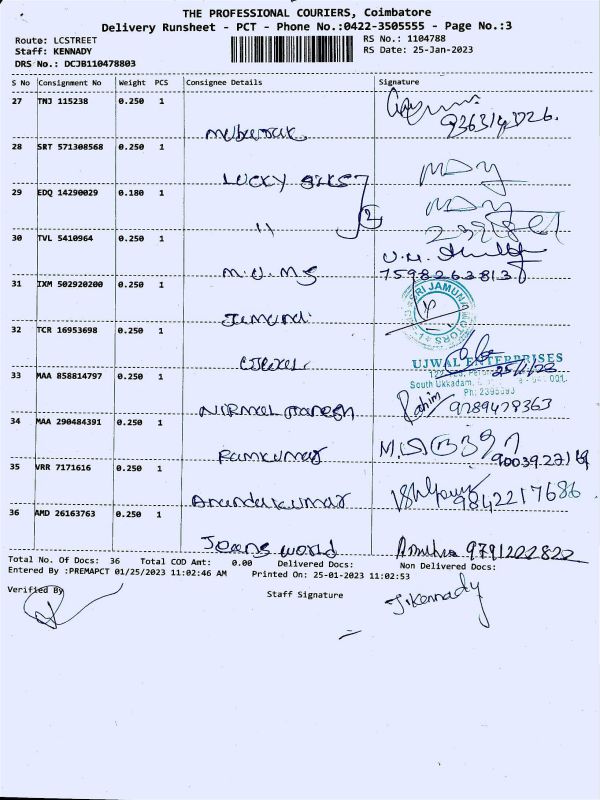 THE PROFESSIONAL COURIERS, Coimbatore
Delivery Runsheet - PCT - Phone No.:0422-3505555 - Page No.:3
Route: LCSTREET
Staff: KENNADY
DRS No.: DCJB110478803
RS No.: 1104788
RS Date: 25-Jan-2023
S No Consignment No Weight PCS Consignee Details Signature
27 TNJ 115238 0.250 1
Mubarak
28 SRT 571308568 0.250 1
LUCKY SILKS MDY
29 EDQ 14290029 0.180 1 MDY
11 2
30 TVL 5410964 0.250 1
M.U.MS 7598263813
31 IXM 502920200 0.250 1
Jamuna SRI JAMUNA MOTORS
32 TCR 16953698 0.250 1
UJWAL ENTERPRISES
South Ukkadam,
33 MAA 858814797 0.250 1
NIRMAL Rahim 9789478363
34 MAA 290484391 0.250 1
Ramkumar
35 VRR 7171616 0.250 1
Anandakumar 9842217686
36 AMD 26163763 0.250 1
Jeans world 9791202822
Total No. Of Docs: 36 Total COD Amt: 0.00 Delivered Docs: Non Delivered Docs:
Entered By :PREMAPCT 01/25/2023 11:02:46 AM Printed On: 25-01-2023 11:02:53
Verified By Staff Signature J.Kennady